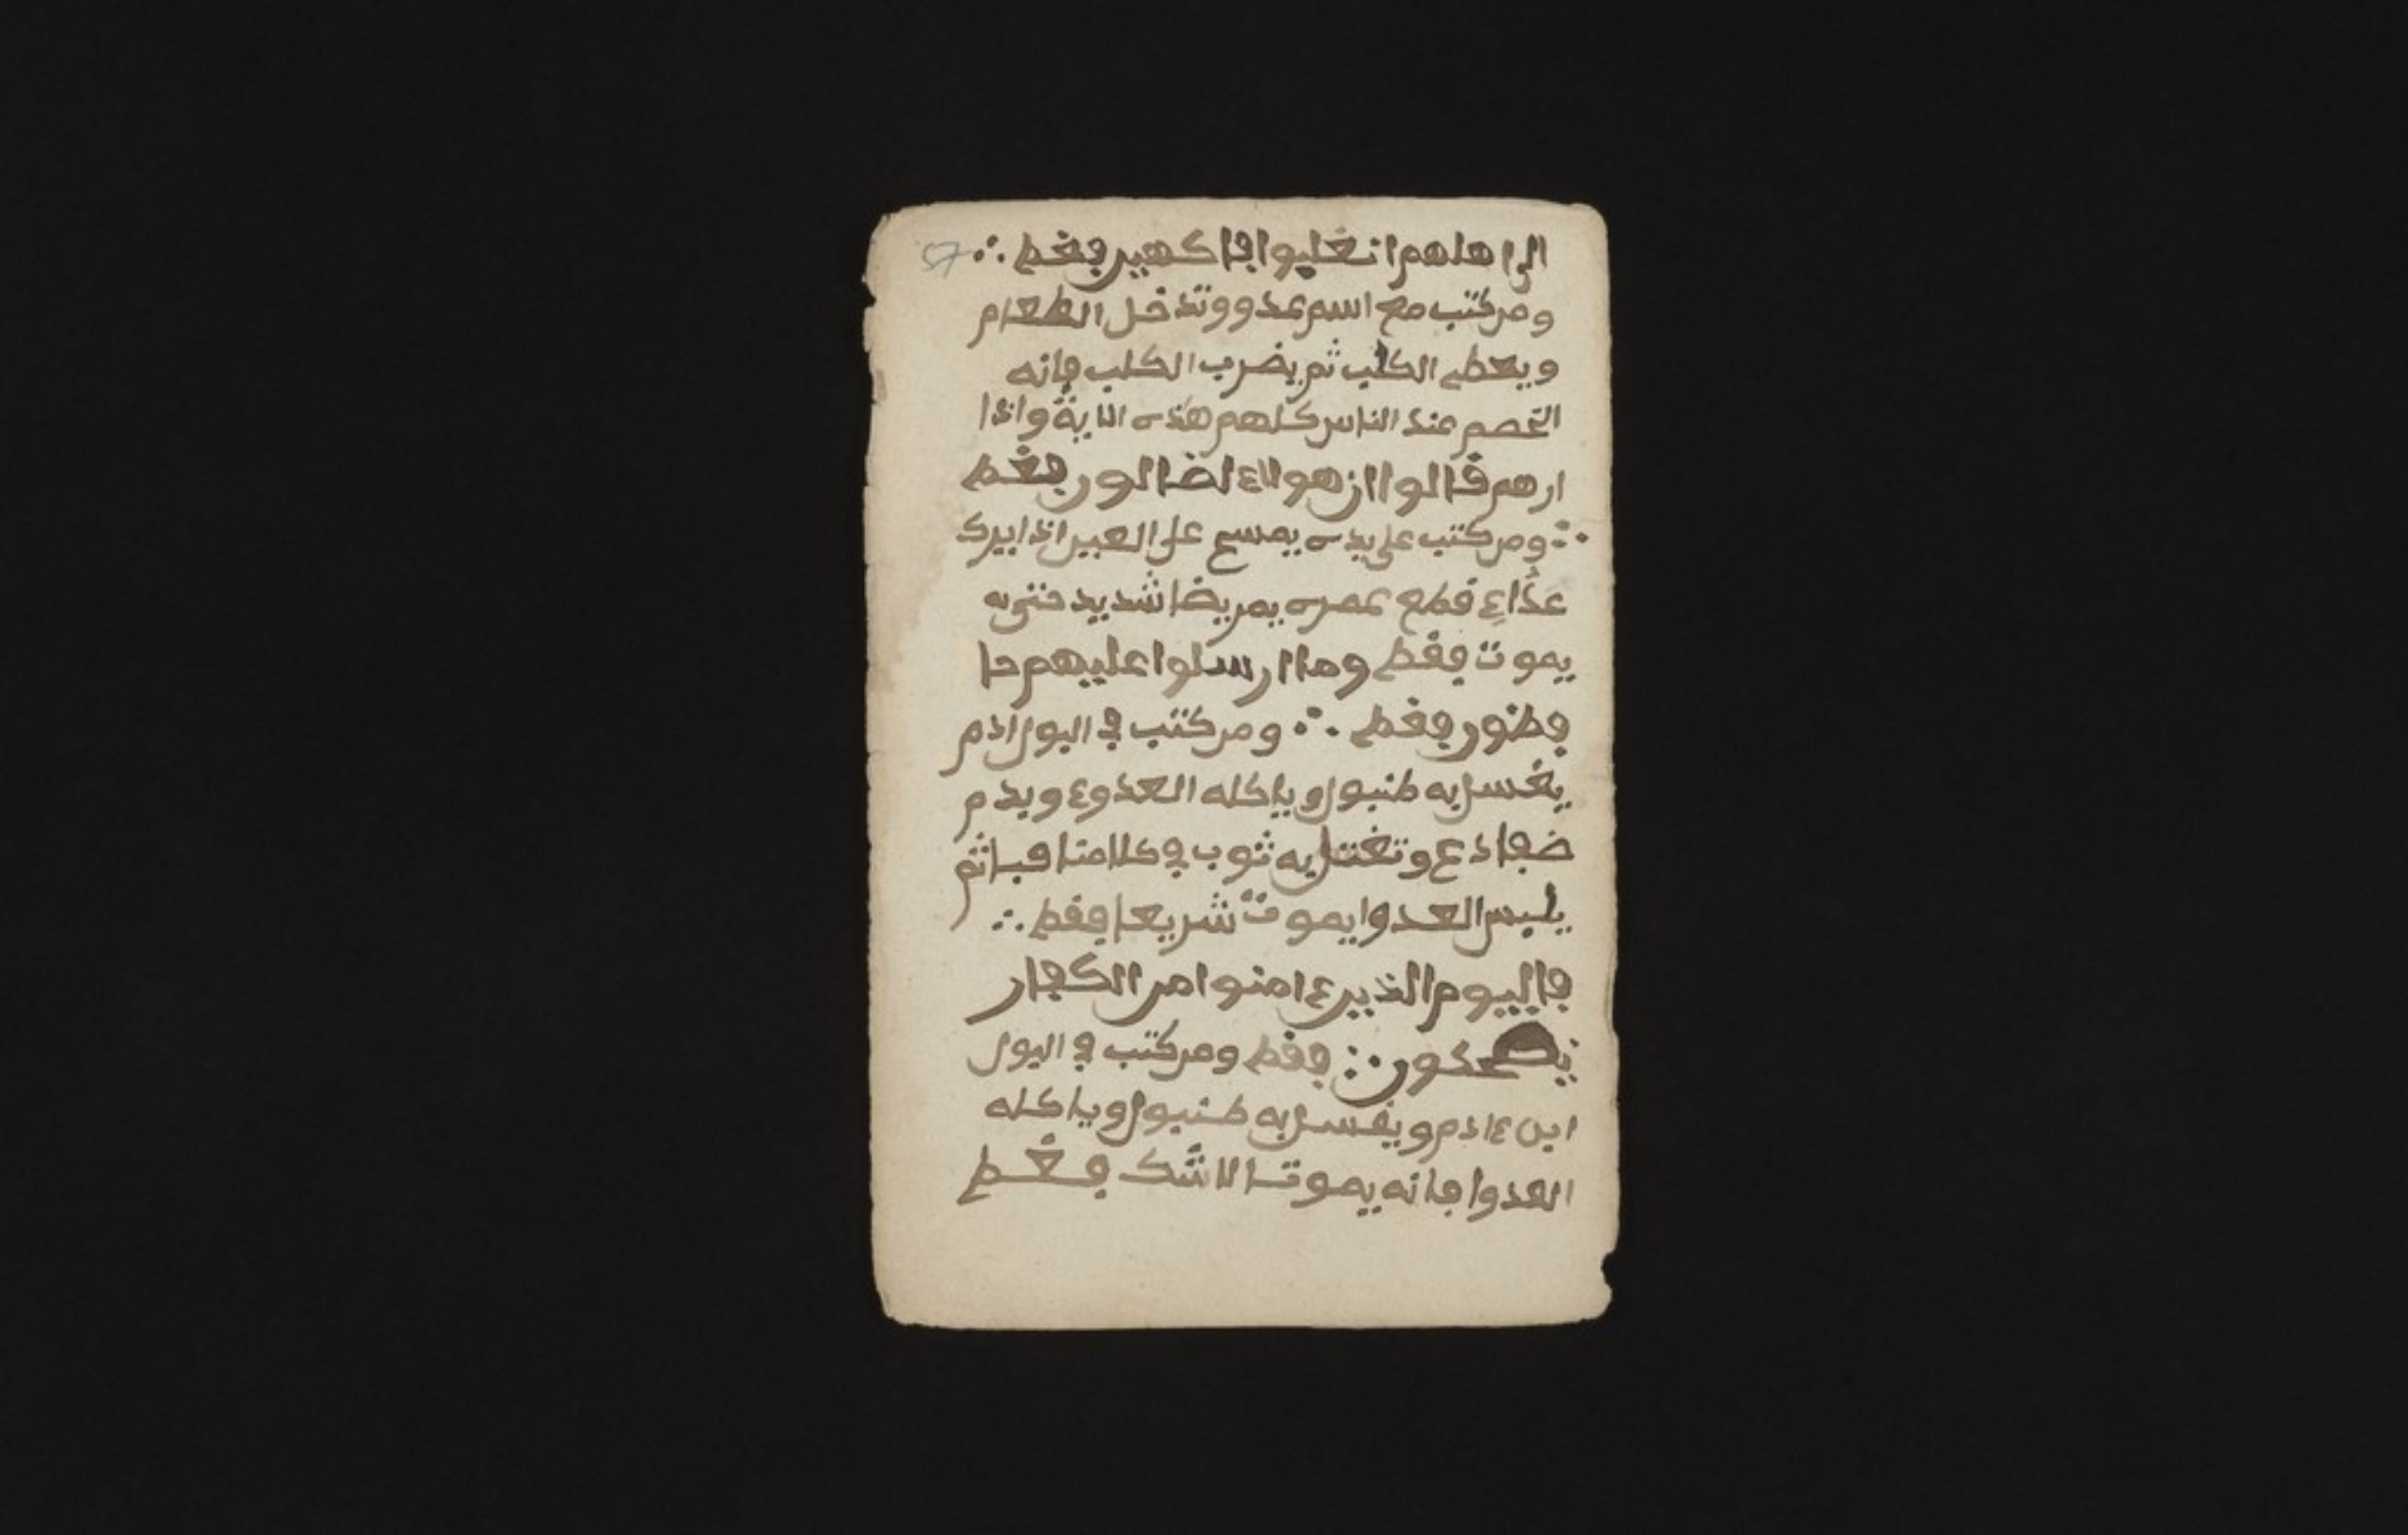 الى اهلهم انغلبوا فاكهين فغط ∴ 57
ومن كتب مع اسم عدو وتدخل الطعام
ويعطى الكلب ثم يضرب الكلب فانه
الخصم عند الناس كلهم هذه الاية واذا
ارهم قالوا ان هولاء لضالون فغط
∴ ومن كتب على يده يمسح على العبير اذا
عداء قطع عمره يمريضا شديد حتى
يموت فقط وما ارسلوا عليهم حا
فظون فغط ∴ ومن كتب في البول ادم
يغسل به طنبول وياكله العدوء ويدم
ضفادع وتغتل به ثوب في كلامنا ثم
يلبس العدوا يموت شريعا فغط ∴
فاليوم الذين ءامنوا من الكفار
يضحكون ∴ فغط ومن كتب في البول
ابن ءادم ويغسل به طنبول وياكله
العدوا فانه يموت الاشك فغط